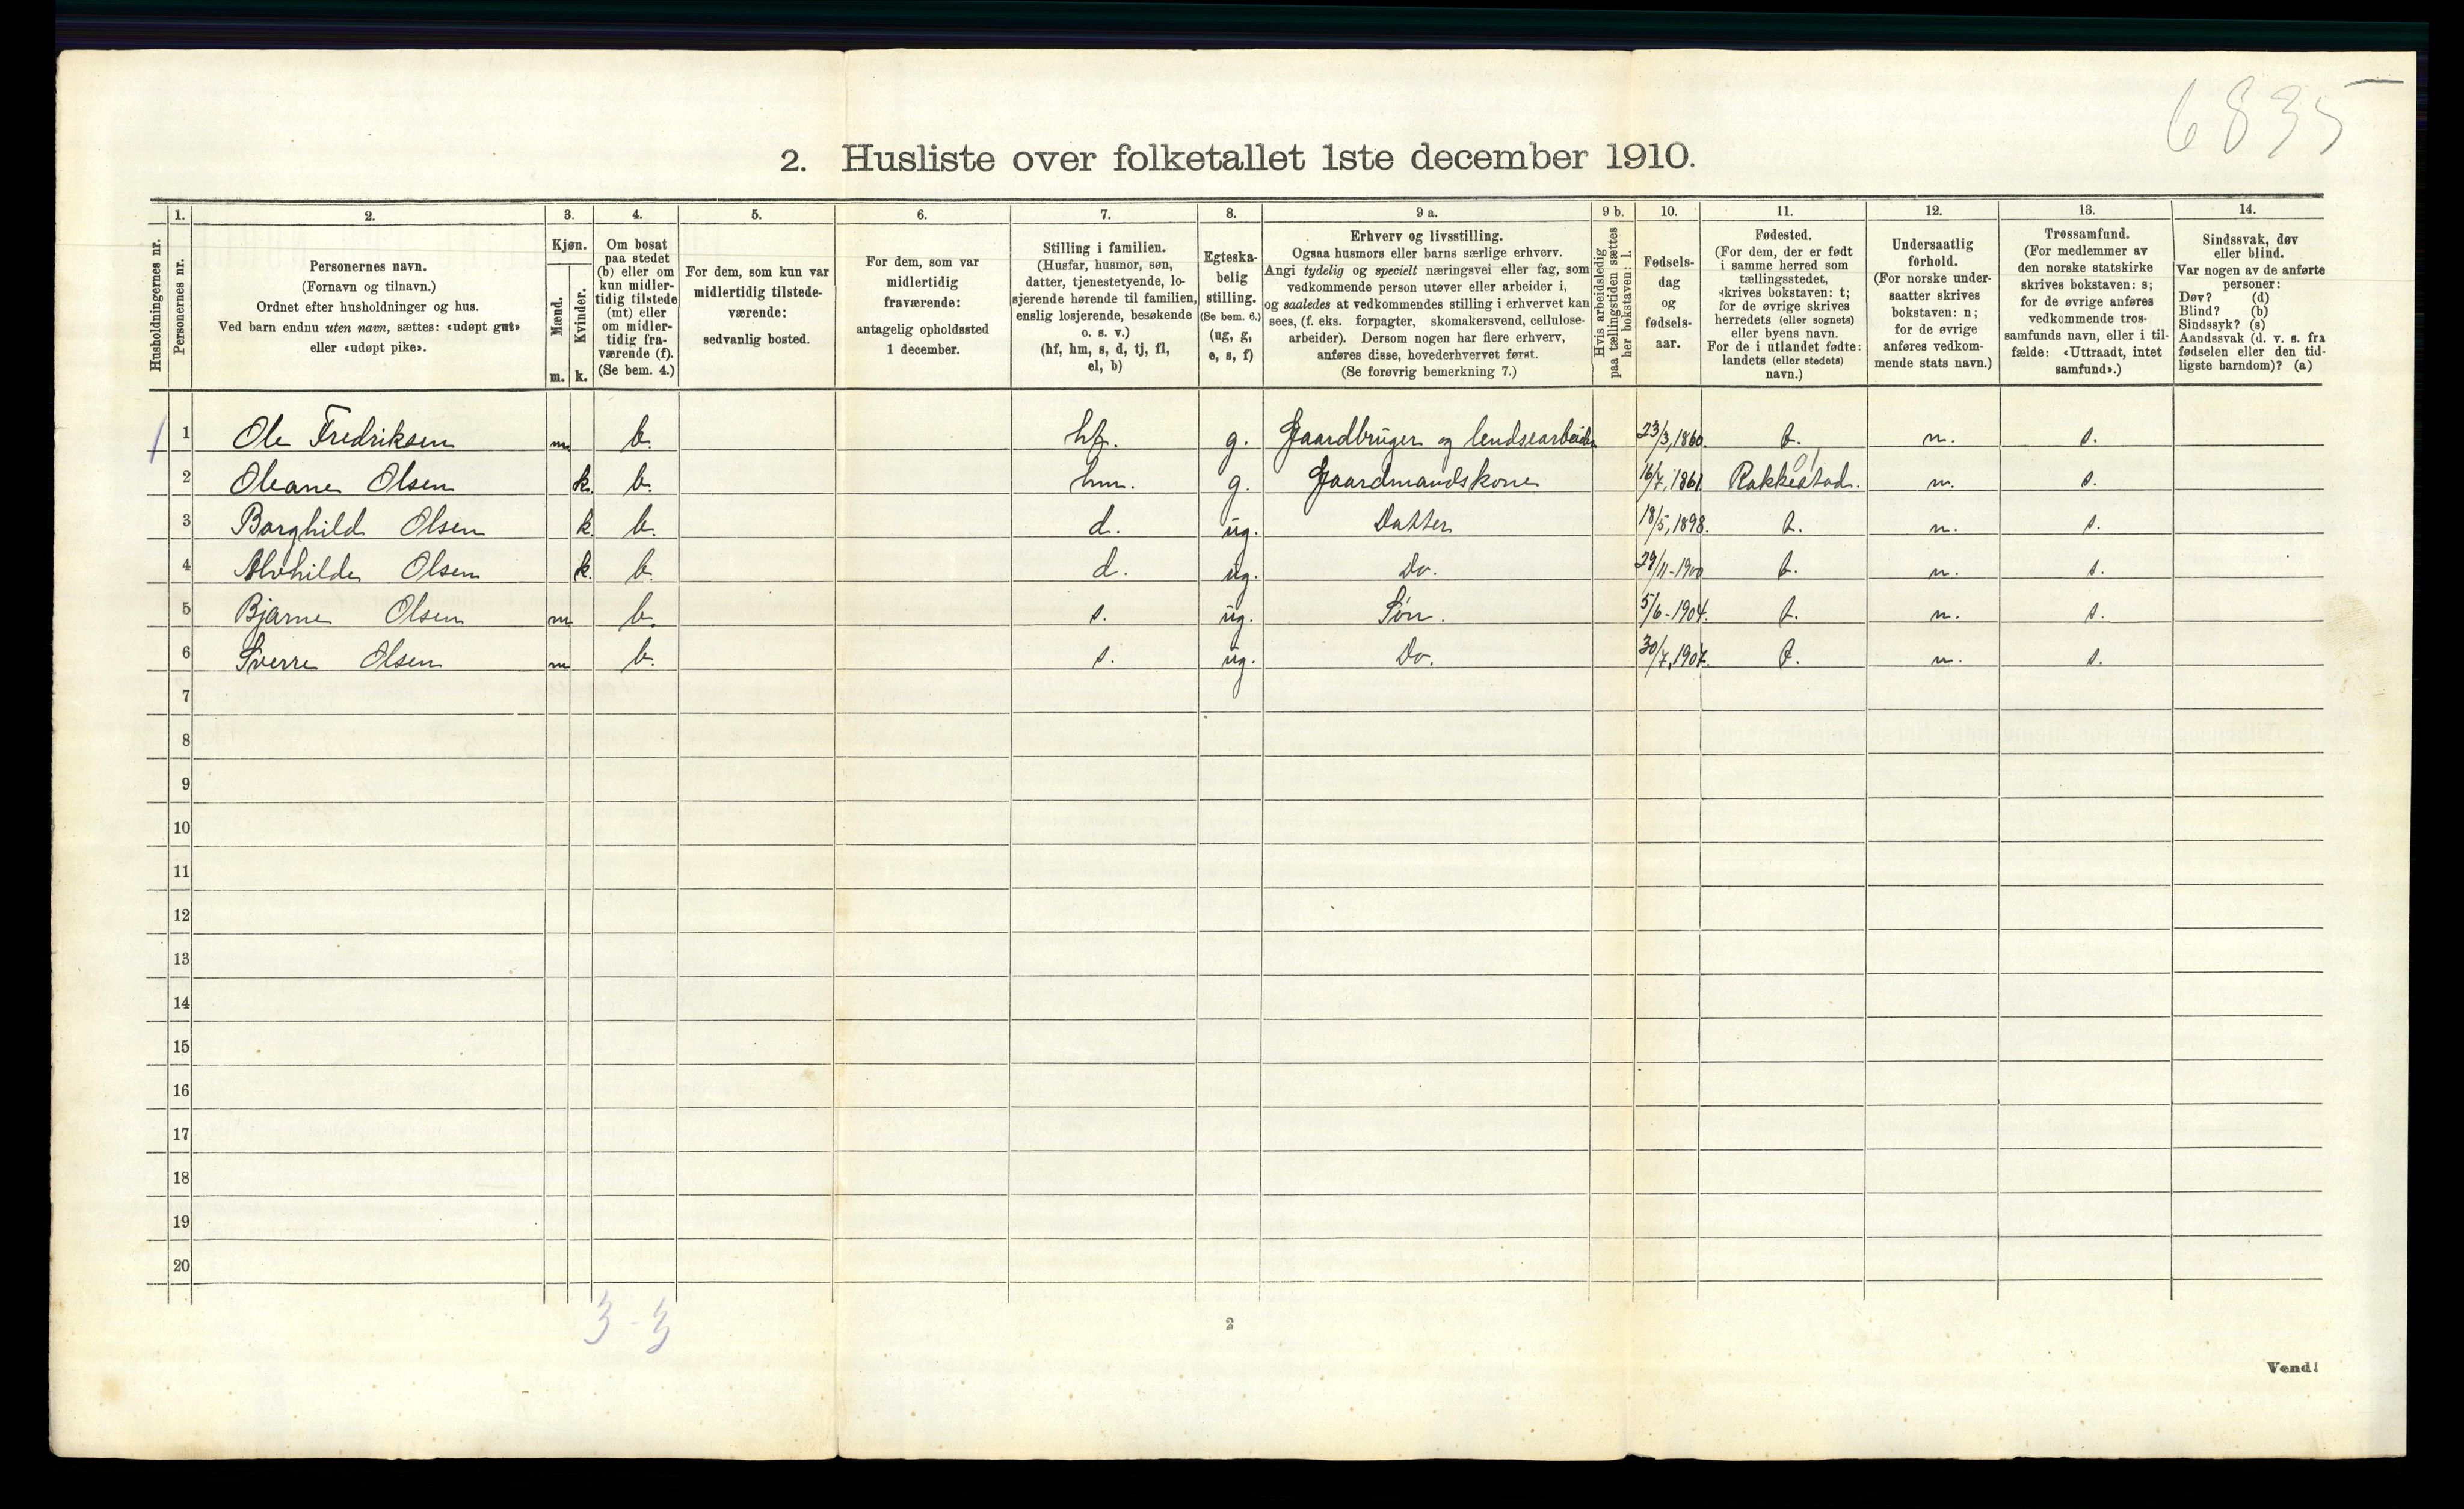 6835
2. Husliste over folketallet 1ste december 1910.
Husholdningernes nr.
1.
Personernes nr.
2.
Personernes navn.
(Fornavn og tilnavn.)
Ordnet efter husholdninger og hus.
Ved barn endnu uten navn, sættes: «udøpt gut»
eller «udøpt pike».
3.
Kjøn.
Mænd.
Kvinder.
m. k.
4.
Om bosat
paa stedet
(b) eller om
kun midler-
tidig tilstede
(mt) eller
om midler-
tidig fra-
værende (f).
(Se bem. 4.)
5.
For dem, som kun var
midlertidig tilstede-
værende:
sedvanlig bosted.
6.
For dem, som var
midlertidig
fraværende:
antagelig opholdssted
1 december.
7.
Stilling i familien.
(Husfar, husmor, søn,
datter, tjenestetyende, lo-
sjerende hørende til familien,
enslig losjerende, besøkende
o. s. v.)
(hf, hm, s, d, tj, fl,
el, b)
8.
Egteska-
belig
stilling.
(Se bem. 6.)
(ug, g,
e, s, f)
9 a.
Erhverv og livsstilling.
Ogsaa husmors eller barns særlige erhverv.
Angi tydelig og specielt næringsvei eller fag, som
vedkommende person utøver eller arbeider i,
og saaledes at vedkommendes stilling i erhvervet kan
sees, (f. eks. forpagter, skomakersvend, cellulose-
arbeider). Dersom nogen har flere erhverv,
anføres disse, hovederhvervet først.
(Se forøvrig bemerkning 7.)
9 b.
Hvis arbeidsledig
paa tællingstiden sættes
her bokstaven: l.
10.
Fødsels-
dag
og
fødsels-
aar.
11.
Fødested.
(For dem, der er født
i samme herred som
tællingsstedet,
skrives bokstaven: t;
for de øvrige skrives
herredets (eller sognets)
eller byens navn.
For de i utlandet fødte:
landets (eller stedets)
navn.)
12.
Undersaatlig
forhold.
(For norske under-
saatter skrives
bokstaven: n;
for de øvrige
anføres vedkom-
mende stats navn.)
13.
Trossamfund.
(For medlemmer av
den norske statskirke
skrives bokstaven: s;
for de øvrige anføres
vedkommende tros-
samfunds navn, eller i til-
fælde: «Uttraadt, intet
samfund».)
14.
Sindssvak, døv
eller blind.
Var nogen av de anførte
personer:
Døv? (d)
Blind? (b)
Sindssyk? (s)
Aandssvak (d. v. s. fra
fødselen eller den tid-
ligste barndom)? (a)
1 Ole Fredriksen m b. hf. g. Gaardbruger og lendsearbeider 23/3, 1860. t. n. s.
2 Oleane Olsen k. b. hm. g. Gaardmandskone 16/7, 1861 Rakkestad. n. s.
3 Borghild Olsen k. b. d. ug. Datter 18/5, 1898. t. n. s.
4 Alvhilde Olsen k. b. d. ug. Do. 29/11-1900 t. n. s.
5 Bjarne Olsen m b. s. ug. Søn. 5/6-1904. t. n. s.
6 Sverre Olsen m b. s. ug. Do. 30/7, 1907. t. n. s.
7
8
9
10
11
12
13
14
15
16
17
18
19
20
3-3
2
Vend!